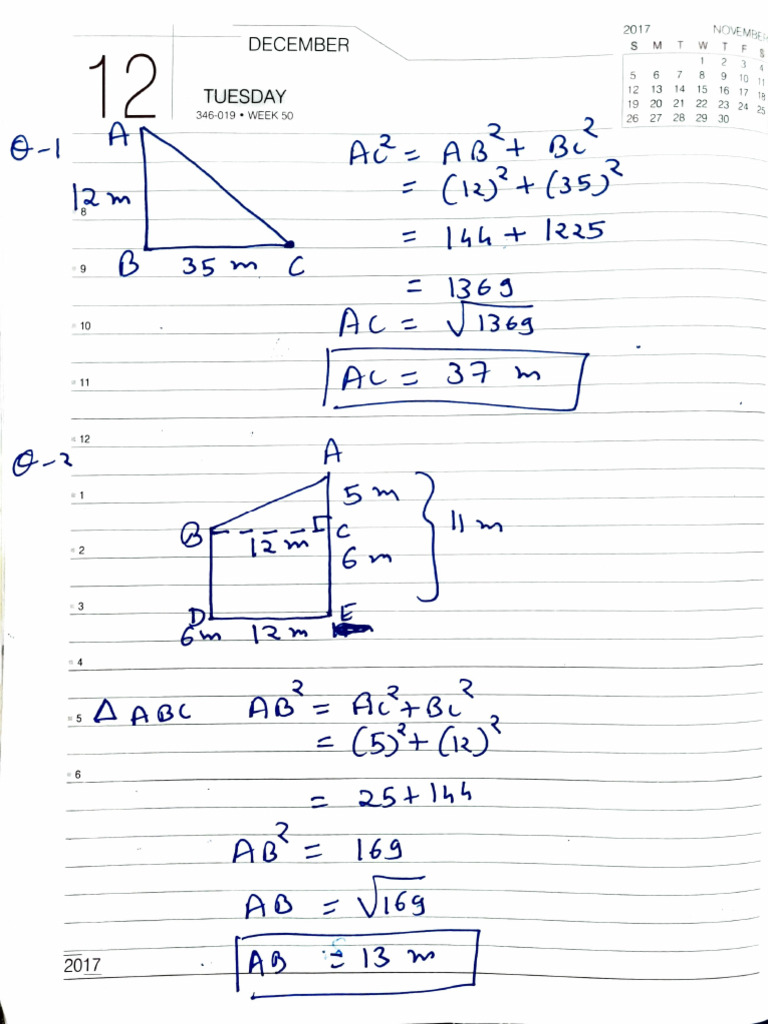 DECEMBER
12
TUESDAY
346-019 • WEEK 50
2017 NOVEMBER
S M T W T F S
1 2 3 4
5 6 7 8 9 10 11
12 13 14 15 16 17 18
19 20 21 22 23 24 25
26 27 28 29 30
Q-1
A
12 m
8
B 35 m C
9
AC² = AB² + BC²
= (12)² + (35)²
= 144 + 1225
= 1369
10
AC = √1369
11
AC = 37 m
12
Q-2
A
1
5 m
B 12 m C
11 m
2
6 m
3
D E
6m 12 m
4
5
Δ ABC AB² = AC² + BC²
= (5)² + (12)²
6
= 25 + 144
AB² = 169
AB = √169
AB = 13 m
2017